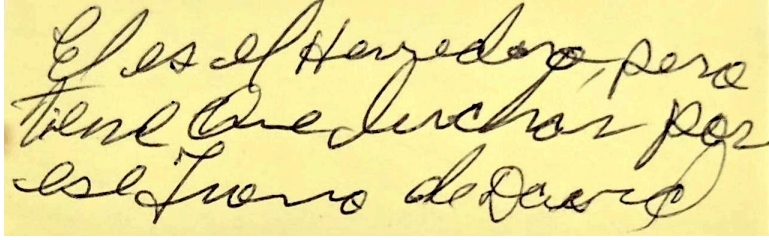 El es el Herredero, pero
tiene Que luchar por
ese Trono de David